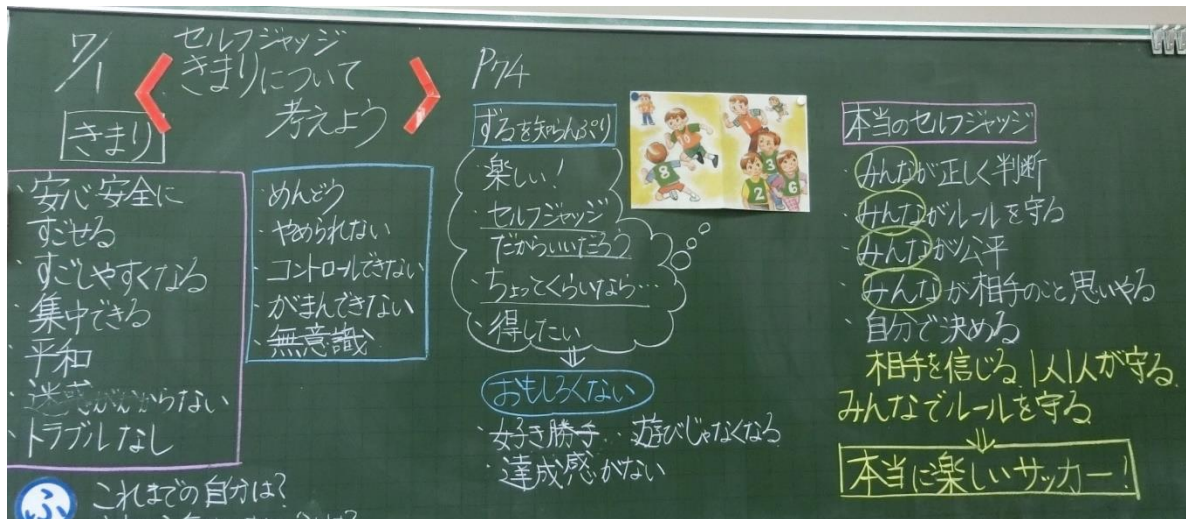 7/1
セルフジャッジ
きまりについて
考えよう
P74
きまり
・安心・安全に
すごせる
・すごしやすくなる
・集中できる
・平和
・迷惑がかからない
・トラブルなし
・めんどう
・やめられない
・コントロールできない
・がまんできない
・無意識
ずるを知らんぷり
・楽しい!
・セルフジャッジ
だからいいだろう
・ちょってくらいなら…
・得したい
⇓
おもしろくない
・好き勝手‥遊びじゃなくなる
・達成感がない
8
2
3
6
本当のセルフジャッジ
・みんなが正しく判断
・みんながルールを守る
・みんなが公平
・みんなが相手のこと思いやる
・自分で決める
相手を信じる 1人1人が守る
みんなでルールを守る
⇓
本当に楽しいサッカー!
ふ
これまでの自分は?